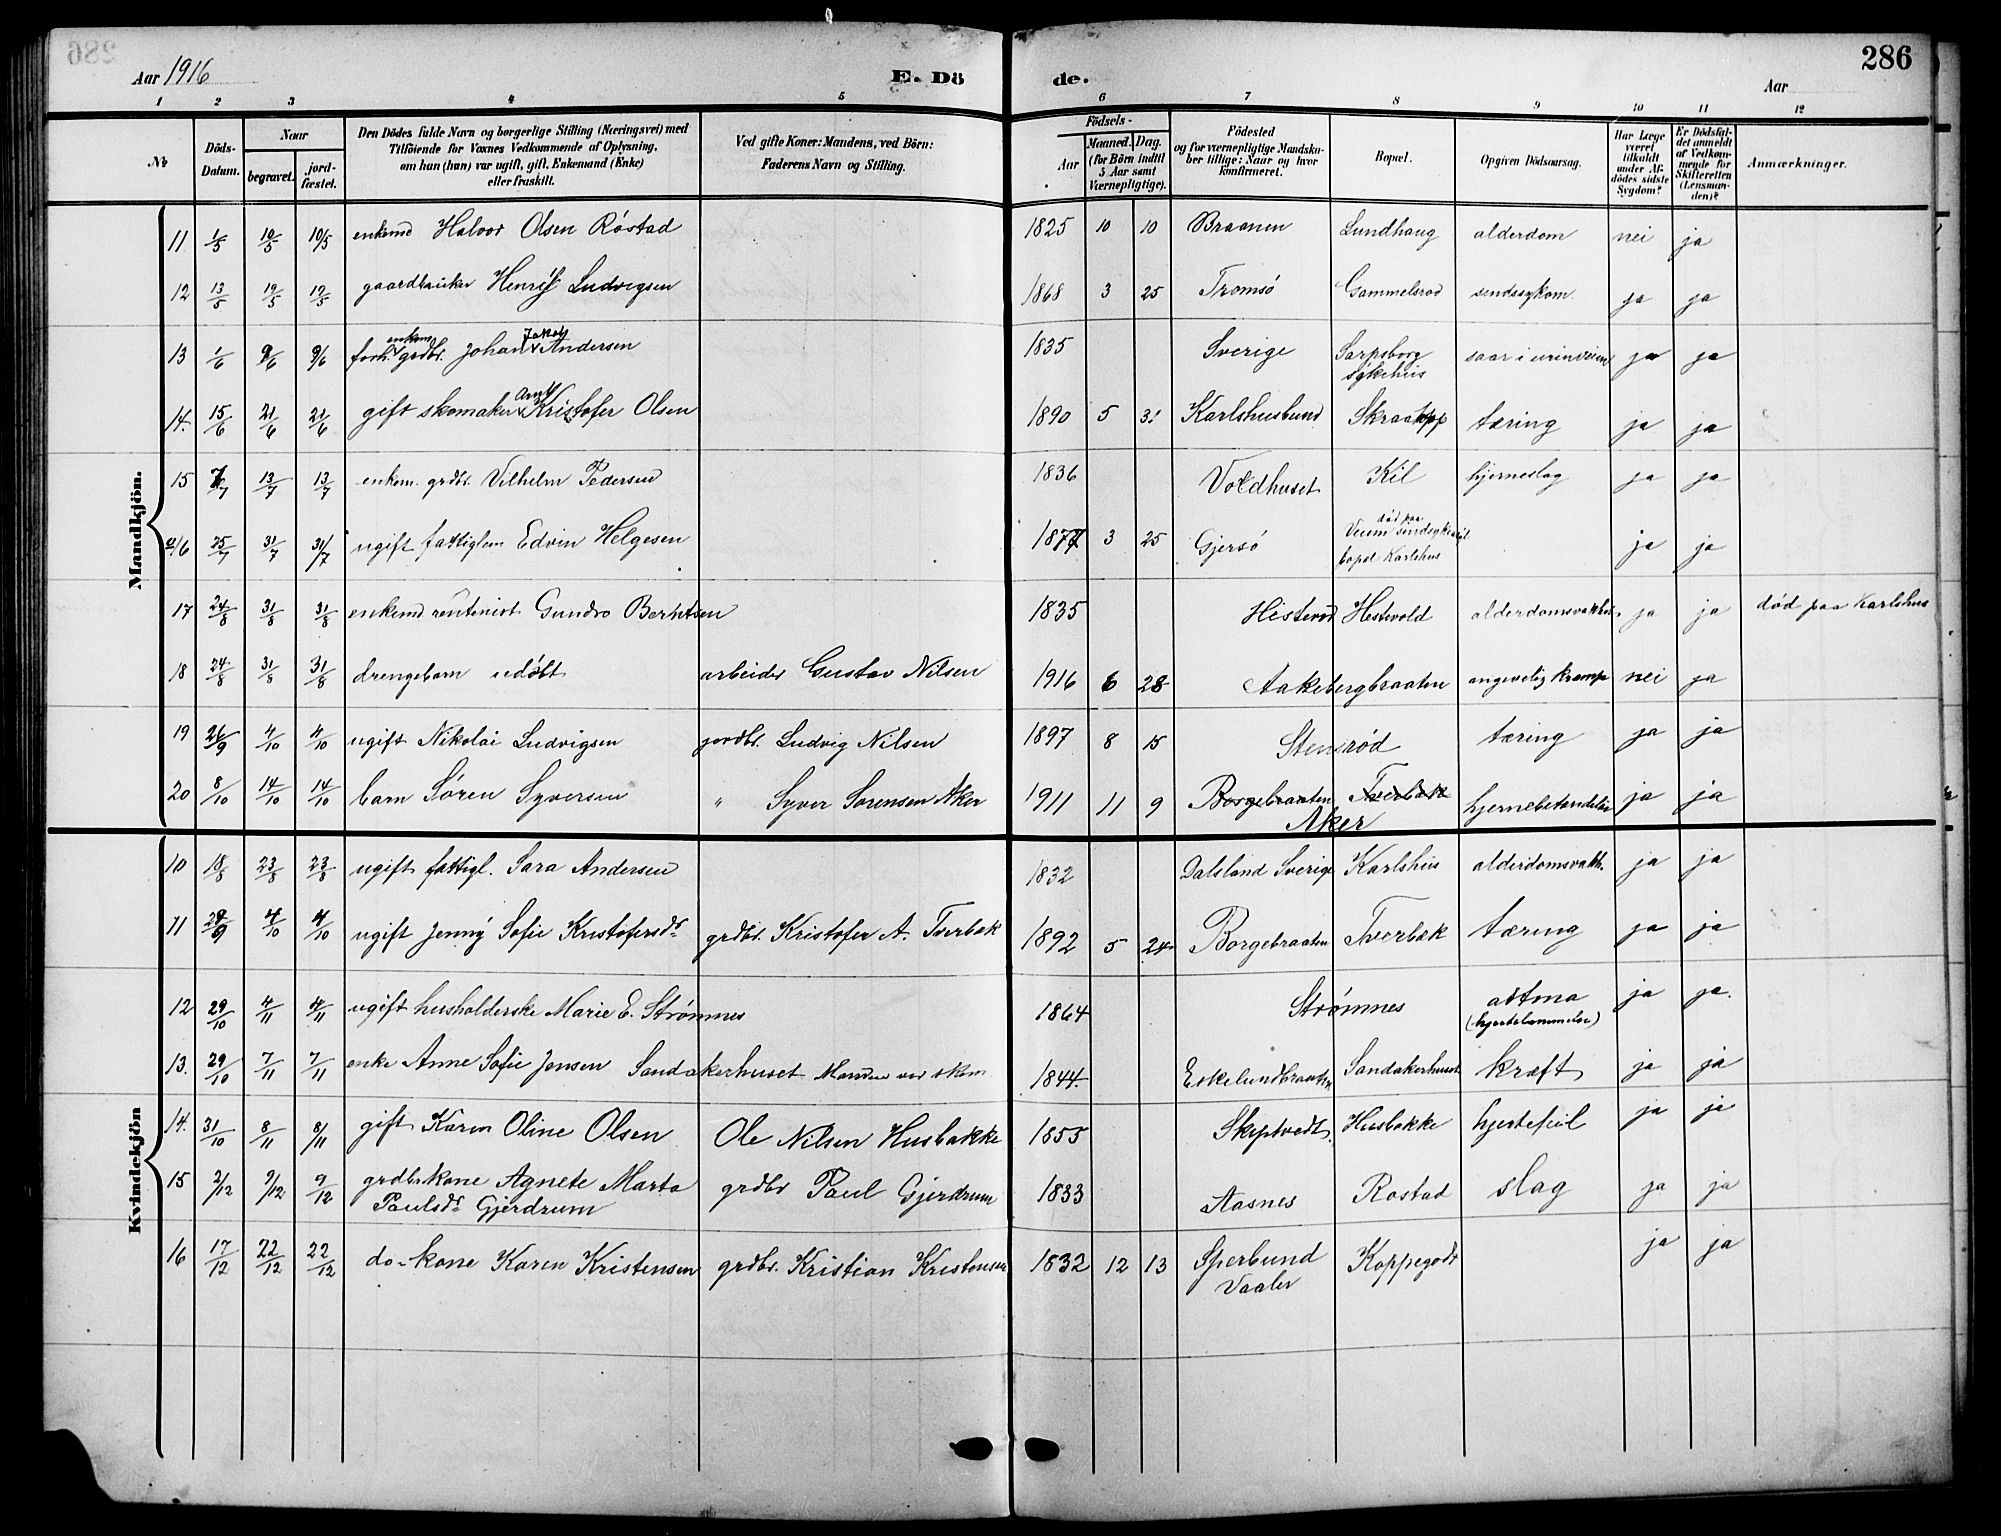 286
Aar 1916 E. Dö de. Aar
1 2 3 4 5 6 7 8 9 10 11 12
No
Döds-Datum.
Naar
begravet. jord-fæstet.
Den Dödes fulde Navn og borgerlige Stilling (Næringsvei) med
Tilföiende for Voxnes Vedkommende af Oplysning,
om han (hun) var ugift, gift, Enkemand (Enke)
eller fraskilt.
Ved gifte Koner: Mandens, ved Börn:
Faderens Navn og Stilling.
Födsels-
Aar Maaned. Dag.
(for Börn indtil
5 Aar samt
Værnepligtige).
Födested
og for værnepligtige Mandska-
ber tillige: Naar og hvor
konfirmeret.
Bopæl.
Opgiven Dödsaarsag.
Har Læge
været
tilkaldt
under Af-
dödes sidste
Sygdom?
Er Dödsfal-
det anmeldt
af Vedkom-
mende for
Skifteretten
(Lensman-
den)?
Anmærkninger.
Mandkjön.
11 1/5 10/5 10/5 enkemd Halvor Olsen Röstad 1825 10 10 Braanen Lundhaug alderdom nei ja
12 13/5 19/5 19/5 gaardbruker Henrik Ludvigsen 1868 3 25 Tromsø Gammelsrod sindssykom. ja ja
13 1/6 9/6 9/6 forh. enkem grdbr. Johan Jakob Andersen 1835 Sverige Sarpsborg sykehus saar i urinveien ja ja
14. 15/6 21/6 21/6 gift skomaker Arnt Kristofer Olsen 1890 5 31 Karlshusbund Skraatopp tæring ja ja
15 7/7 13/7 13/7 enkem. grdbr. Vilhelm Pedersen 1836 Voldhuset Kil hjerneslag ja ja
16 25/7 31/7 31/7 ugift fattiglem Edvin Helgesen 1877 3 25 Gjersø død paa Veum Sindsykeasil bopæl Karlshus ja ja
17 24/8 31/8 31/8 enkemd rentenist Gundro Berntsen 1835 Hestevold Hestevold alderdomsvakhet. ja ja død paa Karlshus
18 24/8 31/8 31/8 drengebarn udøbt arbeider Gustav Nilsen 1916 6 28 Aakebergbraaten angevelig krampe nei ja
19 26/9 4/10 4/10 ugift Nikolai Ludvigsen jordbr. Ludvig Nilsen 1897 8 15 Stensrød tæring ja ja
20 8/10 14/10 14/10 barn Søren Syversen " Syver Sorensen Aker 1911 11 9 Borgebraaten Tverbæk Aker hjernebetændelse ja ja
Kvindekjön
10 18/8 23/8 23/8 ugift fattigl. Sara Andersen 1832 Dalsland Sverige Karlshus alderdomsvakh. ja ja
11 29/9 4/10 4/10 ugift Jenny Sofie Kristofersdr grdbr. Kristofer A. Tverbæk 1892 5 24 Borgebraaten Tverbæk tæring ja ja
12 29/10 4/11 4/11 ugift husholderske Marie E. Strømnes 1864 Strømnes astma (hjertelammelse) ja ja.
13. 29/10 7/11 7/11 enke Anne Sofie Jensen Sandakerhuset Manden var skom 1844. Eskelundbraaten Sandakerhuset kræft ja ja
14. 31/10 8/11 8/11 gift Karen Oline Olsen Ole Nilsen Husbakke 1855 Skiptvedt. Husbakke hjertefeil ja ja
15 2/12 9/12 9/12 grdbrkone Agnete Marta Paulsdr Gjerdrum grdbr Paul Gjerdrum 1833 Aasnes Rostad slag ja ja
16 17/12 22/12 22/12 do-kone Karen Kristensen grdbr. Kristian Kristensen 1832 12 13 Sperbund Vaaler Koppegodt ja ja